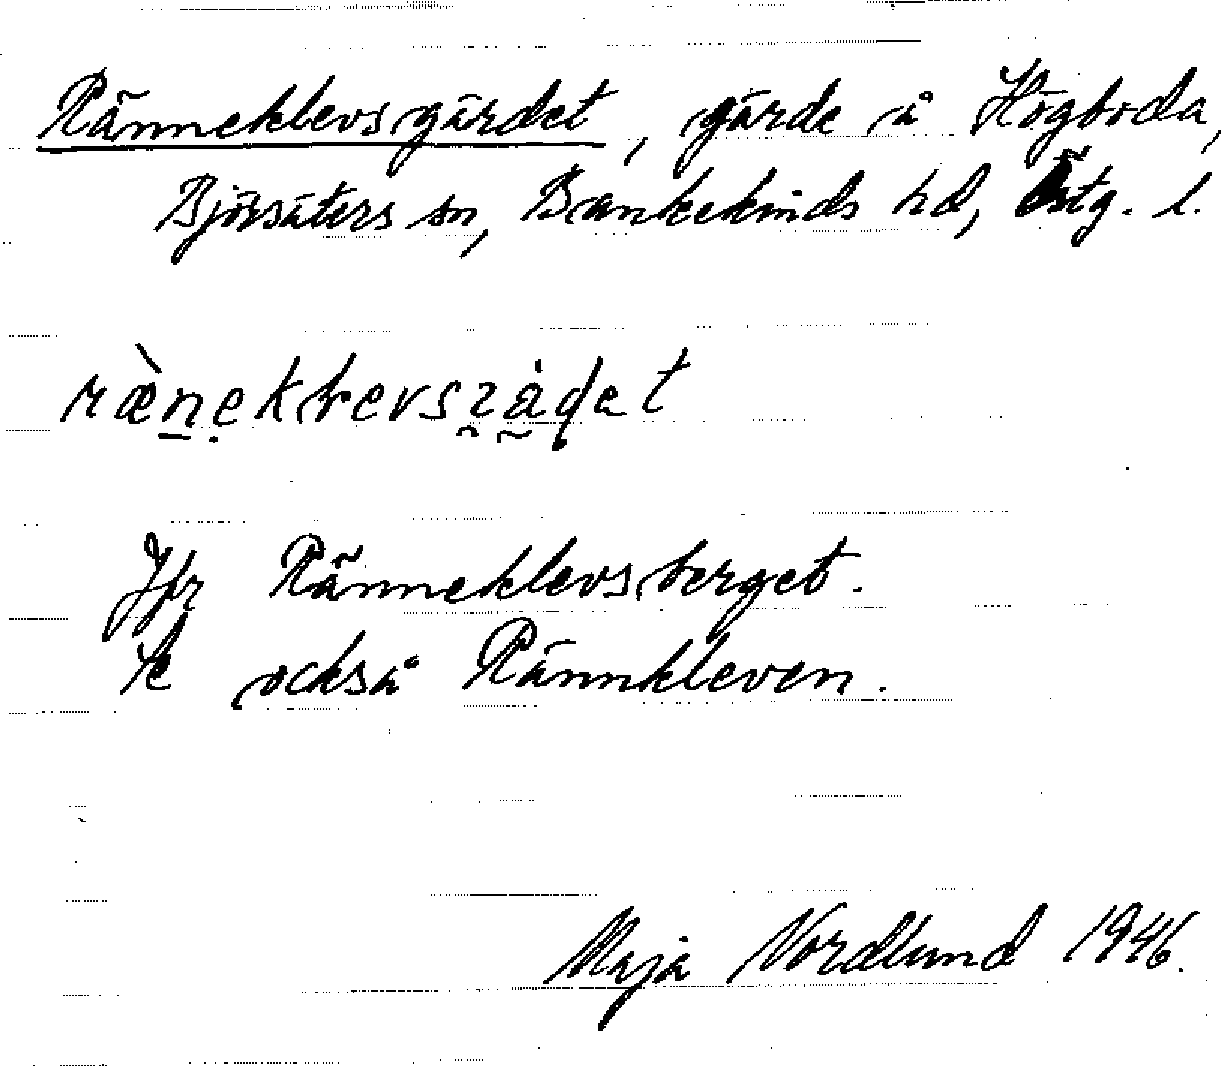 Ränneklevsgärdet, gärde å Högboda,
Björsäters sn, Bankekinds hd, Östg. l.
Jfr Ränneklevsberget.
Se också Rännkleven.
Maja Nordlund 1946.